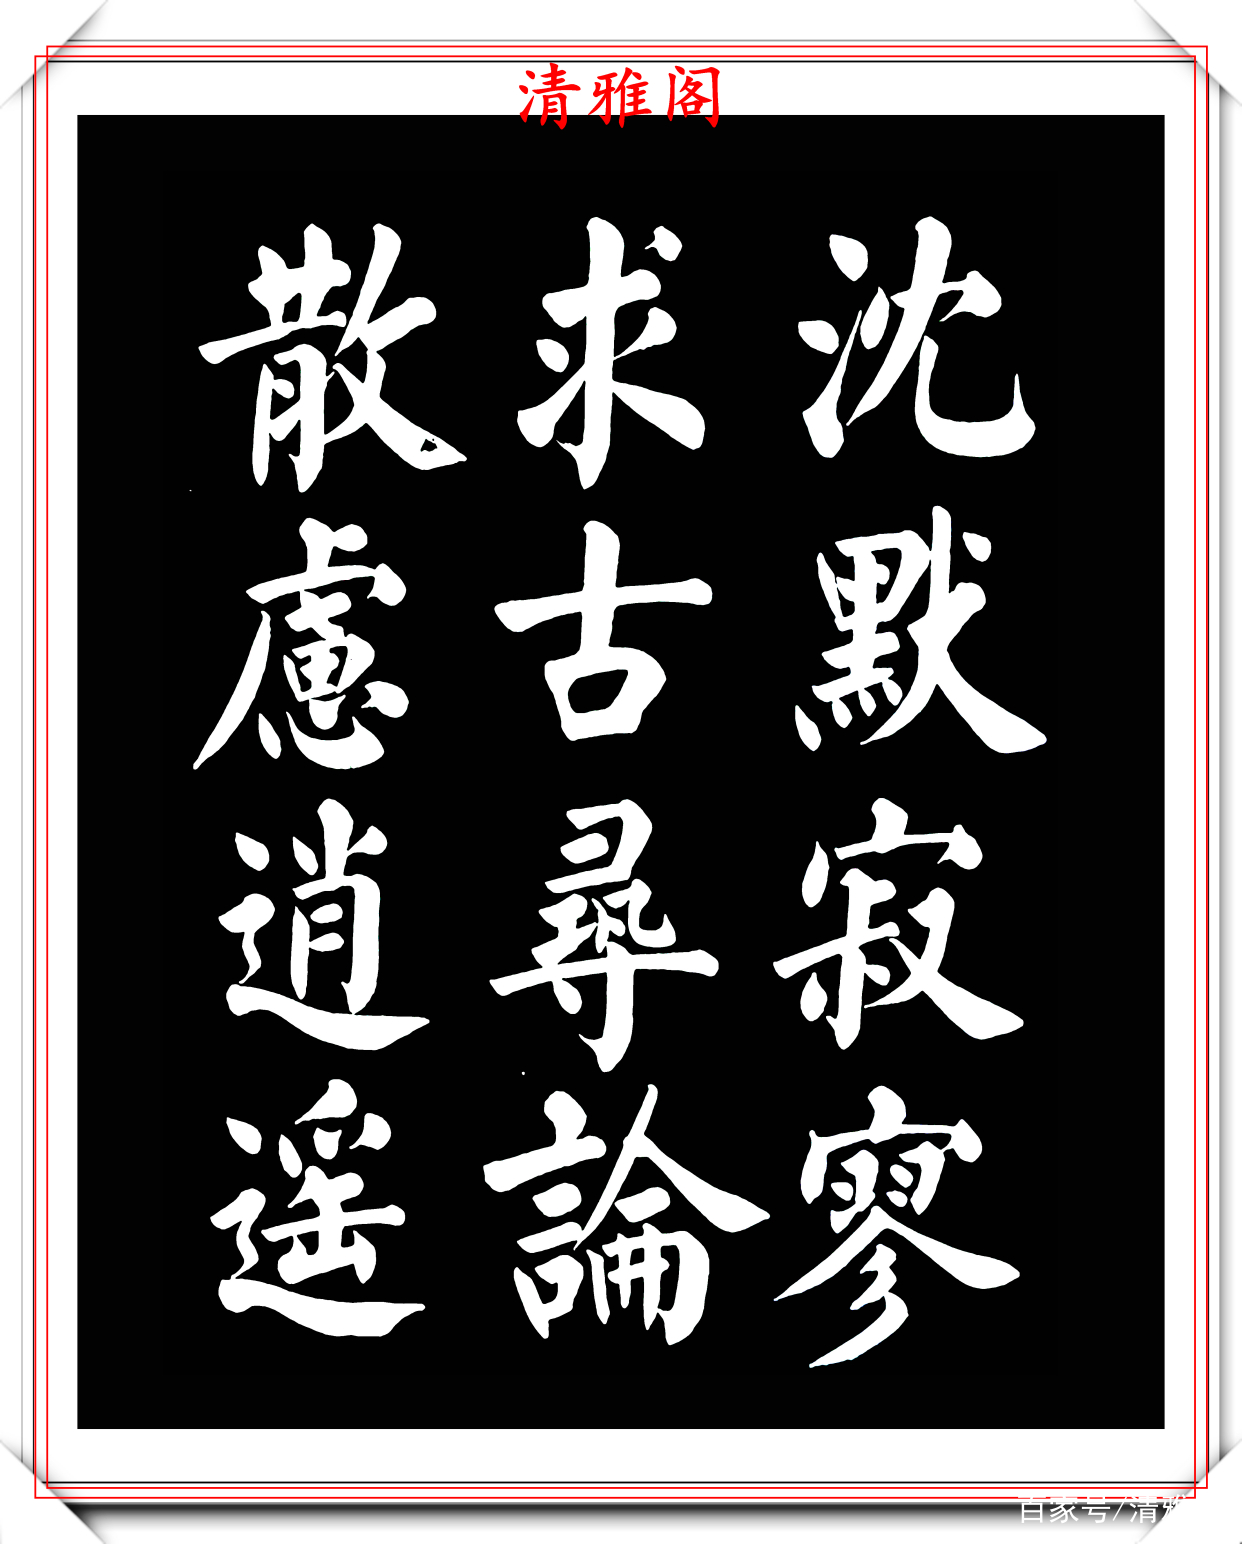 清雅阁
沈默寂寥
求古尋論
散慮逍遥
百家号/清雅